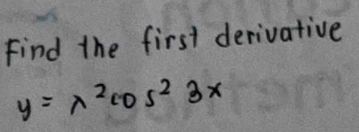 Find the first derivative
y = λ² cos² 3x